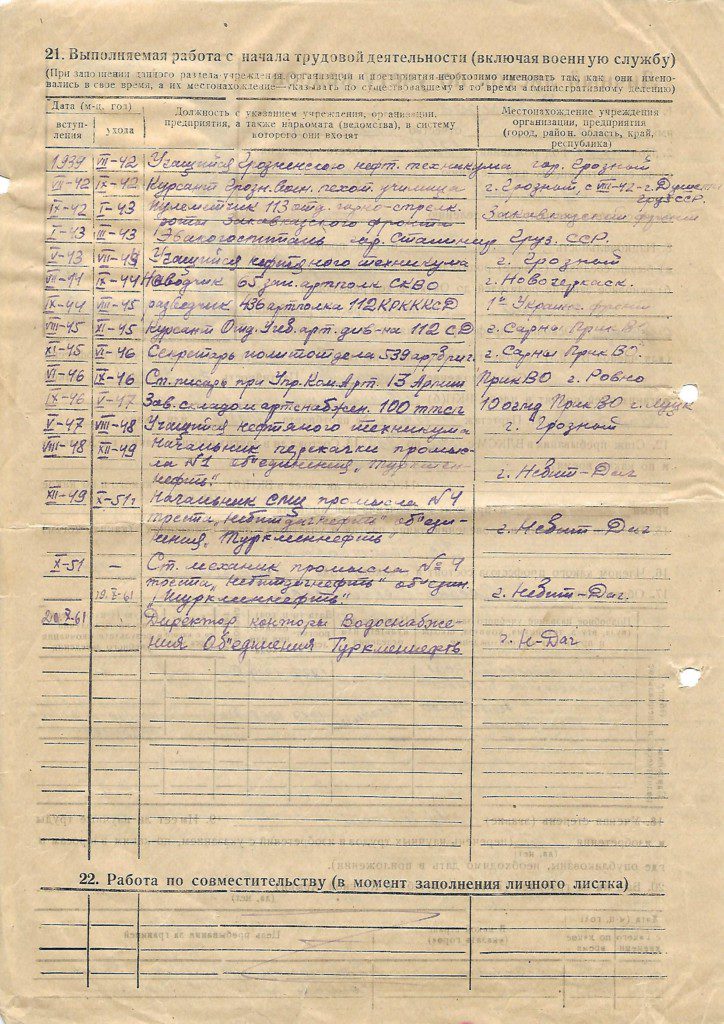 21. Выполняемая работа с начала трудовой деятельности (включая военную службу)
(При заполнении данного раздела учреждения, организации и предприятия необходимо именовать так, как они имено-
вались в свое время, а их местонахождение—указывать по существовавшему в то время административному делению)
Дата (м-ц, год)
вступ-
ления
ухода
Должность с указанием учреждения, организации,
предприятия, а также наркомата (ведомства), в систему
которого они входят
Местонахождение учреждения
организации, предприятия
(город, район, область, край,
республика)
1939 VII-42 Учащийся Грозненского нефт. техникума гор. Грозный
VII-42 IX-42 Курсант Грозн. Воен. пехот. училища г. Грозный, с VIII-42-г.
Груз ССР.
IX-42 I-43 113 отд. горно-стрелк.
роты Закавказского фронта Закавказский фронт
I-43 III-43 Эвакогоспиталь гор. Сталинир Груз. ССР.
V-43 VII-49 Учащийся нефтяного техникума г. Грозный
VII-44 IX-44 Наводчик 65 зап. артполк СКВО г. Новочеркасск.
IX-44 VIII-45 разведчик 436 артполка 112 КРКККСД 1й Украин. фронт
VIII-45 XI-45 Курсант Отд. Учеб. арт. див-на 112 СД г. Сарны Прик ВО
XI-45 VI-46 Секретарь политотдела 539 арт. бриг. г. Сарны Прик ВО.
VI-46 IX-46 Ст. писарь при Упр. Ком. Арт. 13 Армии Прик ВО г. Ровно
IX-46 V-47 Зав. складом артснабжен. 10 Прик ВО г. Луцк
V-47 VIII-48 Учащийся нефтяного техникума г. Грозный
VIII-48 XII-49 Начальник перекачки промыс-
ла №1 объединения „Туркмен-
нефть". г. Небит-Даг
XII-49 X-51г Начальник промысла №4
треста „Небитдагнефть" объеди-
нения „Туркменнефть" г. Небит-Даг
X-51 — Ст. механик промысла №4
треста „Небитдагнефть" объедин.
19.X-61 „Туркменнефть". г. Небит-Даг.
20.X-61 Директор конторы Водоснабже-
ния Объединения Туркменнефть г. Н-Даг
22. Работа по совместительству (в момент заполнения личного листка)